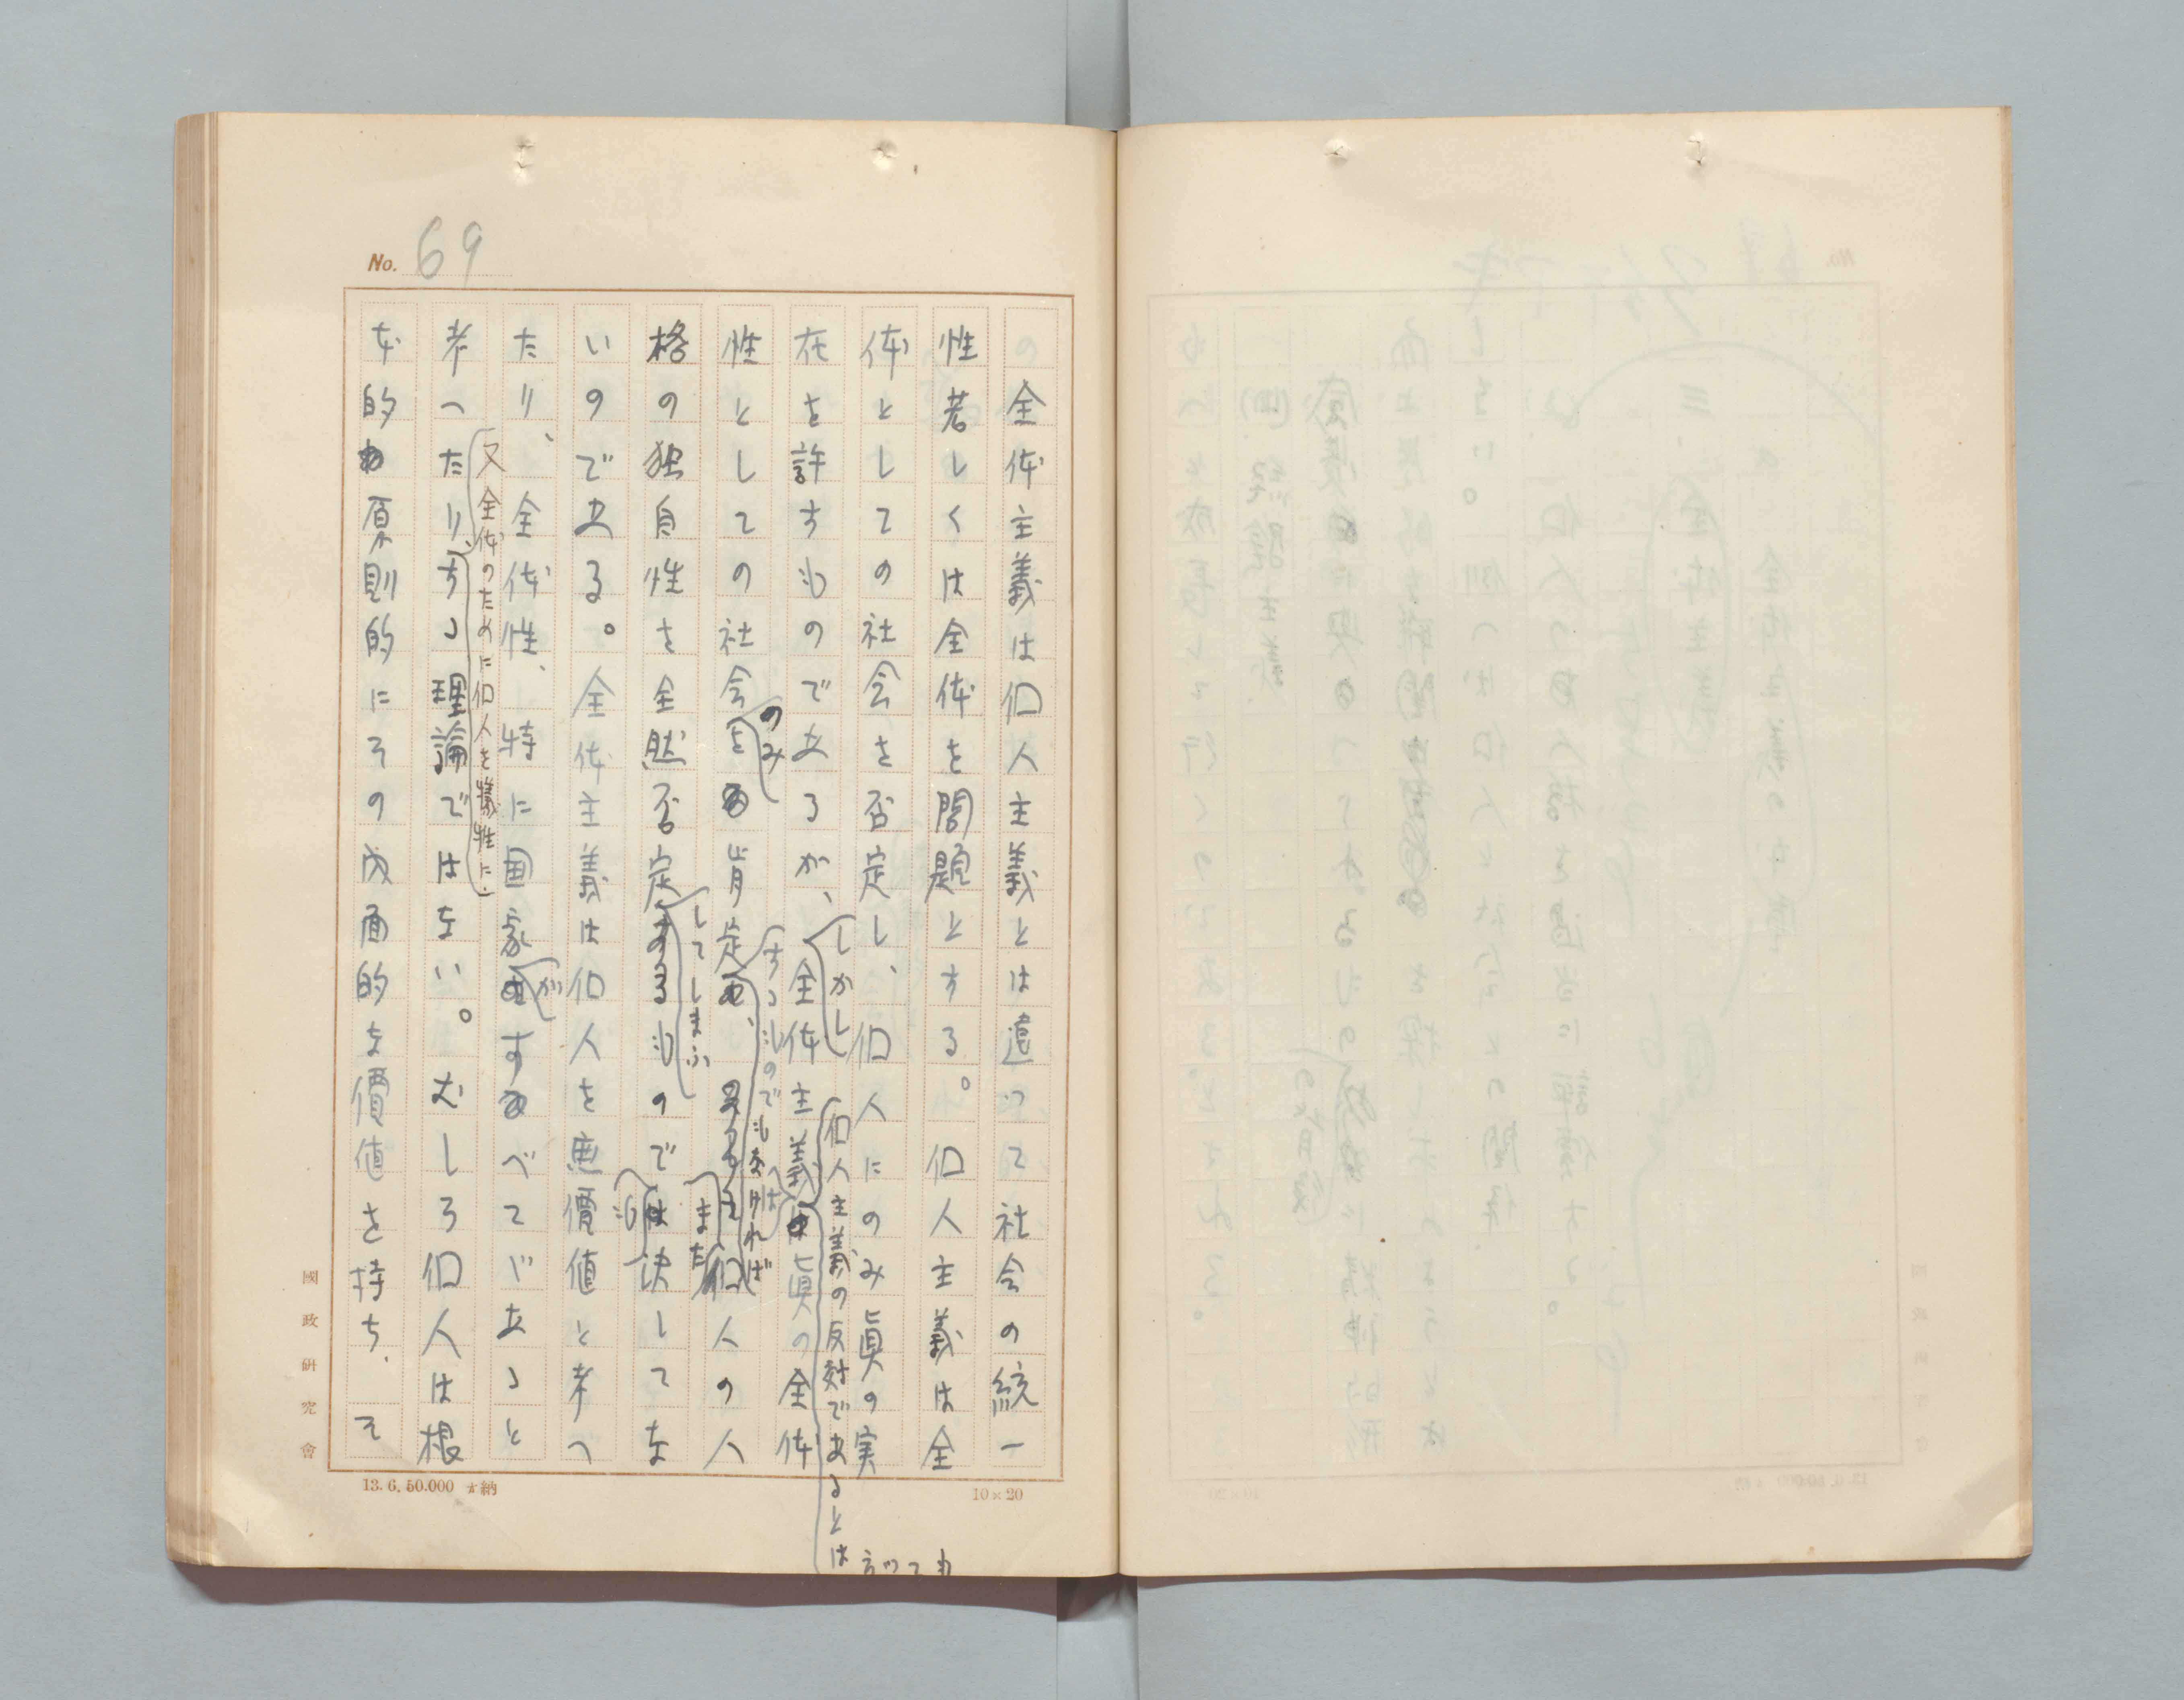 No. 69
の全体主義は個人主義とは違つて社会の統一
性若しくは全体を問題とする。個人主義は全
体としての社会を否定し、個人にのみ眞の実
在を許すものであるが、しかし全体主義は個人主義の反対であるとは言つても眞の全体
性としての社会のみを肯定するものでもなければまた個人の人
格の独自性を全然否定してしまふものでも決してな
いのである。全体主義は個人を無價値と考へ
たり、全体性、特に国家がすべてであると
考へたり、又全体のために個人を犠牲にする理論ではない。むしろ個人は根
本的な原則的にその内面的な價値を持ち、そ
國政研究會
13. 6. 50.000 納
10×20